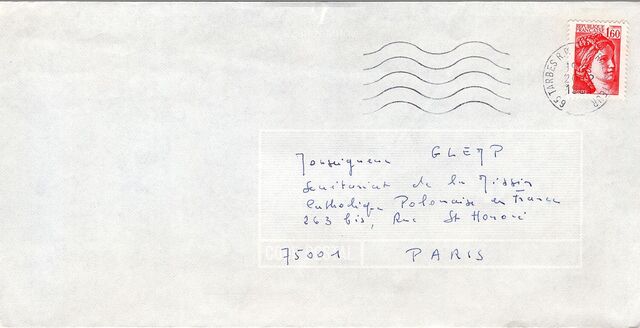 REPUBLIQUE FRANÇAISE
1,60
65 TARBES R.P.
Monseigneur GLEMP
Secrétariat de la Mission
Catholique Polonaise en France
263 bis, Rue St Honoré
75001 PARIS